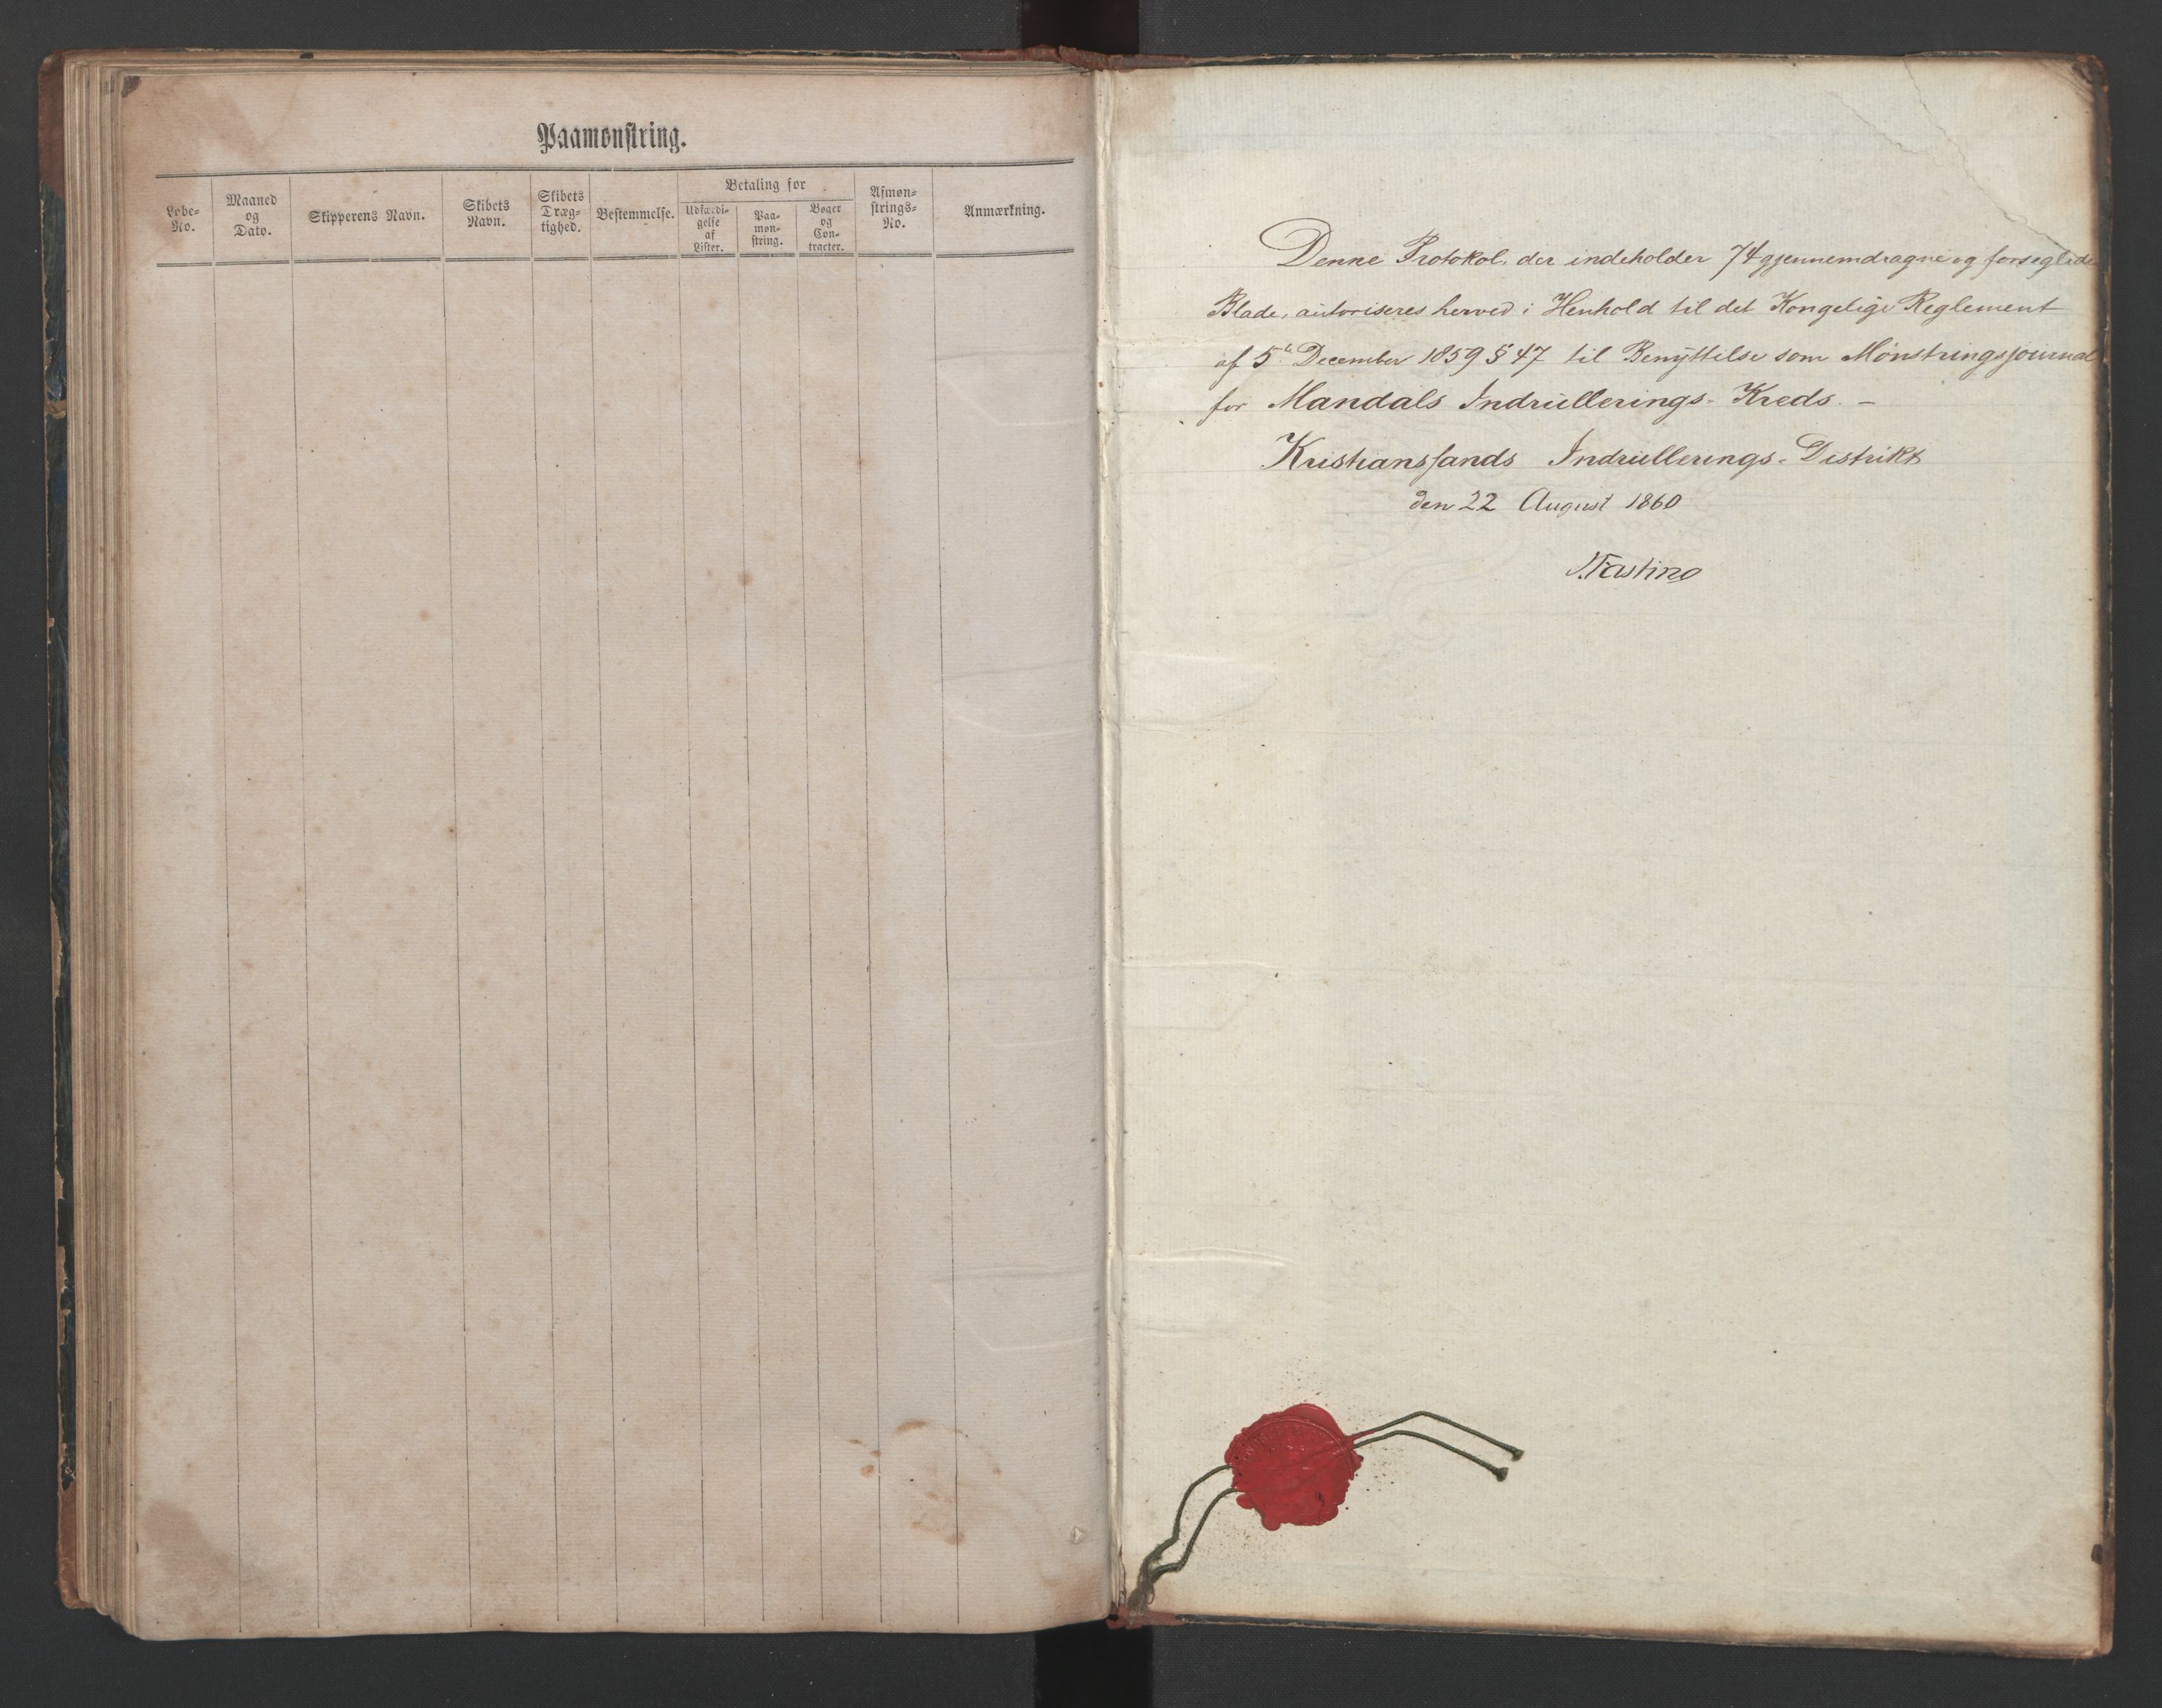 Paamønstring.
Løbe-
No.
Maaned
og
Dato.
Skipperens Navn.
Skibets
Navn.
Skibets
Træg-
tighed.
Bestemmelse.
Betaling for
Udfærdi-
gelse
af
Lister.
Paa-
møn-
string.
Bøger
og
Con-
tracter.
Afmøn-
strings-
No.
Anmærkning.
Denne Protokol, der indeholder 74 gjennemdragne og forseglede
Blade, autoriseres herved i Henhold til det Kongelige Reglement
af 5te December 1859 § 47 til Benyttelse som Mønstringsjournal
for Mandals Indrullerings-Kreds. –
Kristianssands Indrullerings-Distrikt
den 22 August 1860